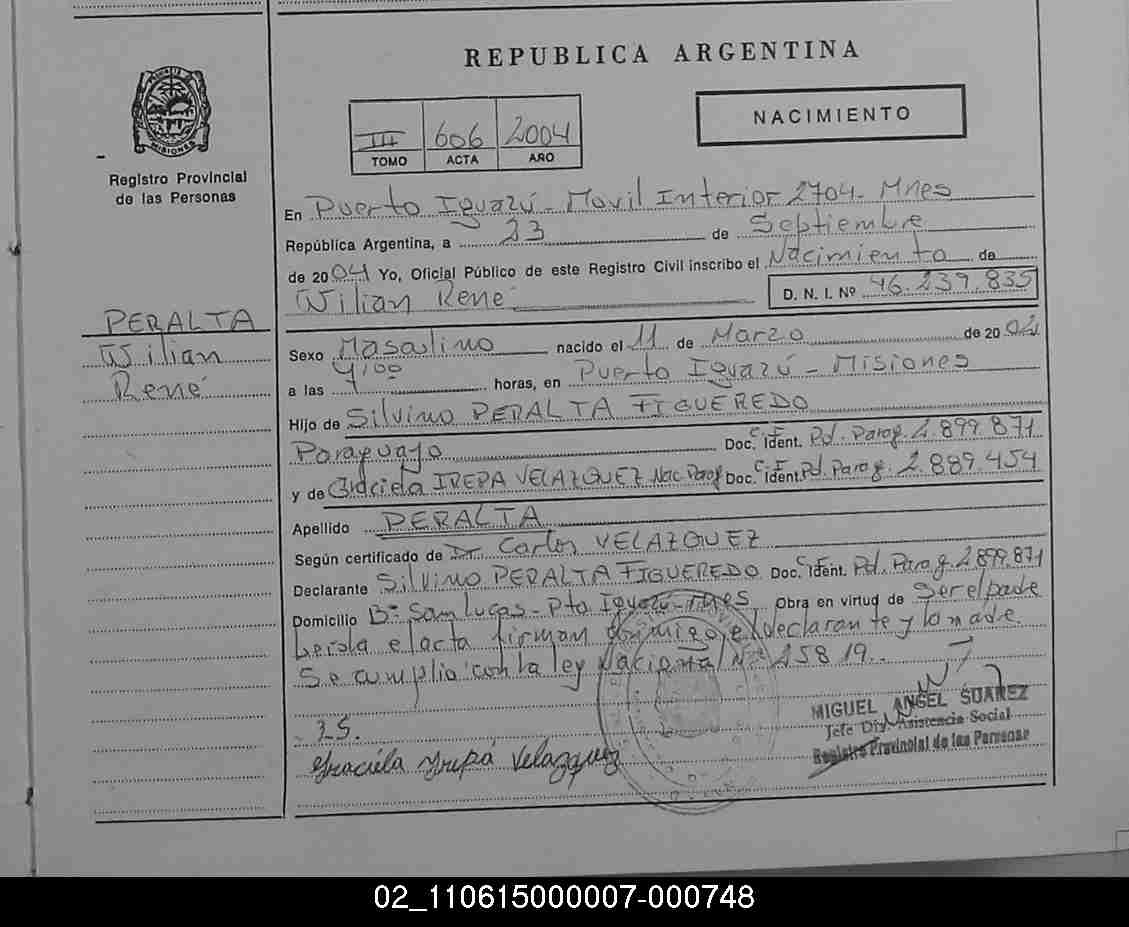 REPUBLICA ARGENTINA
III 606 2004
TOMO ACTA AÑO
NACIMIENTO
Registro Provincial
de las Personas
En Puerto Iguazú - Movil Interior 2704 - Mnes
República Argentina, a 23 de Septiembre
de 2004 Yo, Oficial Público de este Registro Civil inscribo el Nacimiento de
Wilian René D. N. I. Nº 46.239.835
PERALTA
Wilian
René
Sexo Masculino nacido el 11 de Marzo de 2004
a las horas, en Puerto Iguazú - Misiones
Hijo de Silvino PERALTA FIGUEREDO
Paraguayo Doc. Ident. C.I. Pol. Parag. 2.899.871
y de Graciela IREPA VELAZQUEZ Nac. Parag Doc. Ident. C.I. Pol. Parag. 2.889.454
Apellido PERALTA
Según certificado de Dr Carlos VELAZQUEZ
Declarante Silvino PERALTA FIGUEREDO Doc. Ident. C.I. Pol. Parag. 2899.871
Domicilio Bº San Lucas - Pto Iguazu - Mnes Obra en virtud de Ser el padre
Leida el acta firman conmigo el declarante y la madre.
Se cumplio con la ley Nacional Nº 25819.
MIGUEL ANGEL SUAREZ
Jefe Div. Asistencia Social
Registro Provincial de las Personas
Graciela Yrepá Velazquez
02_110615000007-000748